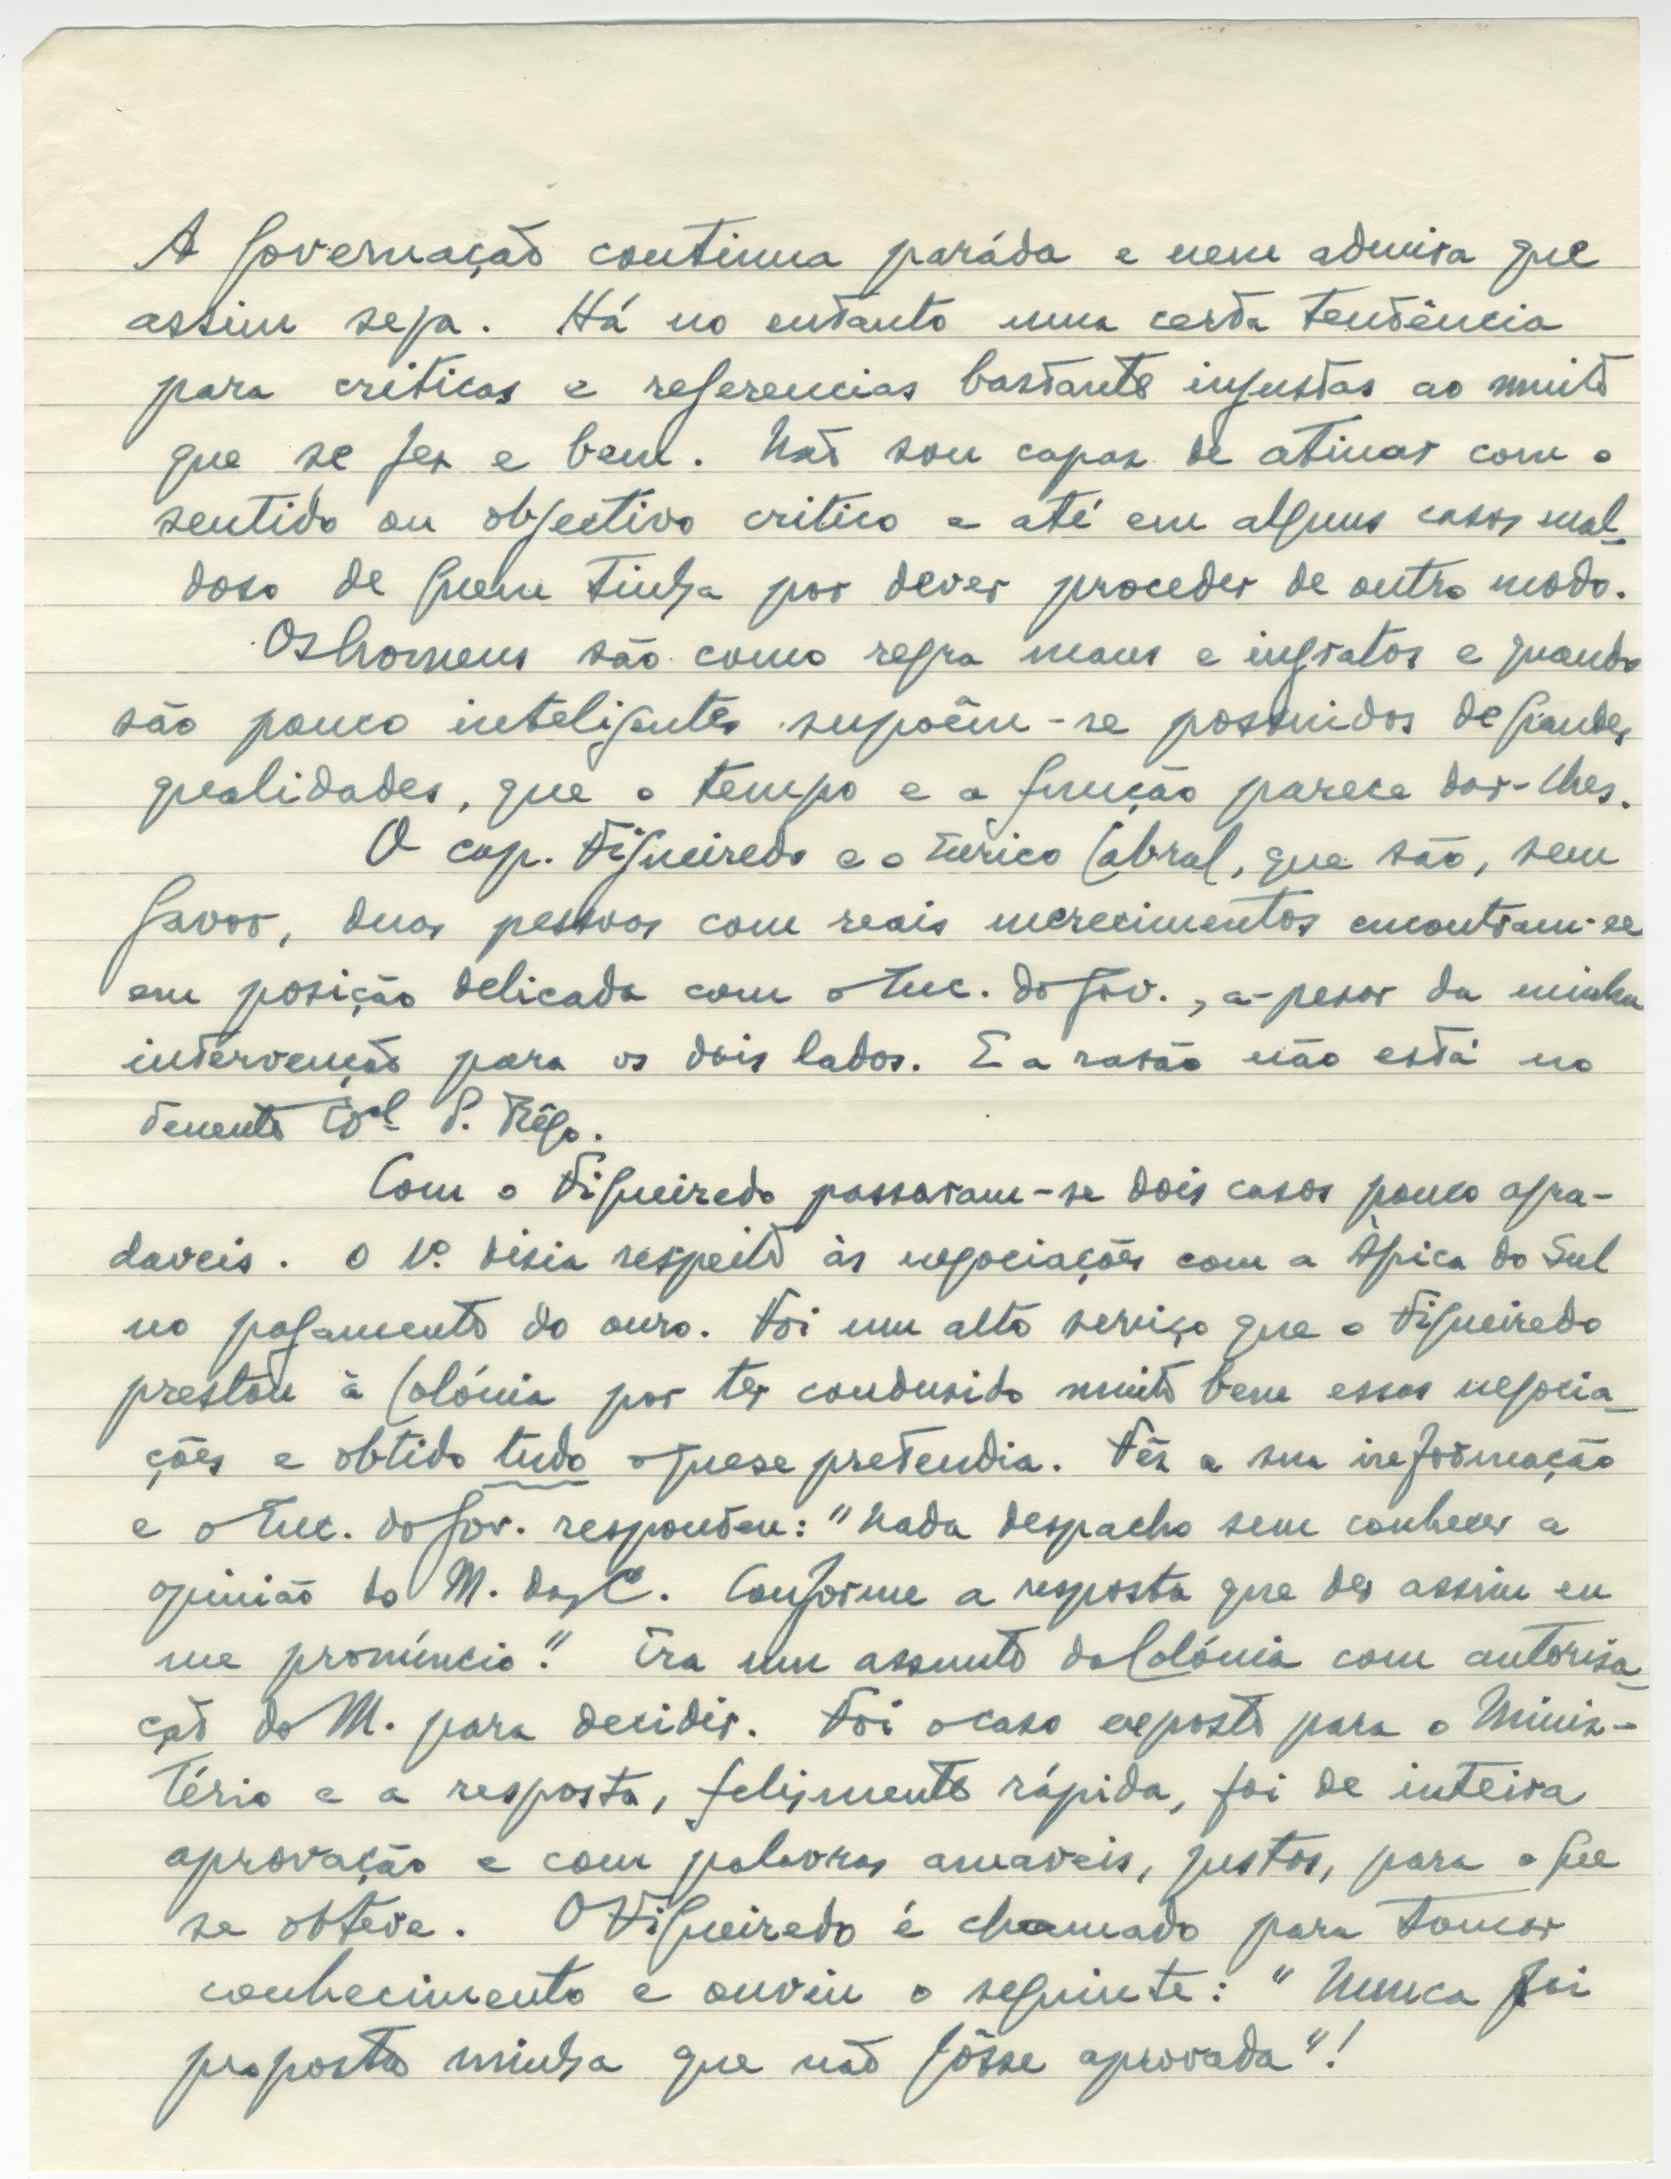 A Governação continua paráda e nem admira que
assim seja. Há no entanto uma certa tendência
para criticas e referencias bastante injustas ao muito
que se fez e bem. Não sou capaz de atinar com o
sentido ou objectivo critico e até em alguns casos mal-
doso de quem tinha por dever proceder de outro modo.
Os homens são como regra maus e ingratos e quando
são pouco inteligentes supoêm-se possuidos de grandes
qualidades, que o tempo e a função parece dar-lhes.
O cap. Figueiredo e o Eurico Cabral, que são, sem
favor, duas pessoas com reais merecimentos encontram-se
em posição delicada com o Enc. do Gov., a-pesar da minha
intervenção para os dois lados. E a rasão não está no
tenente Cel P. Rêgo.
Com o Figueiredo passaram-se dois casos pouco agra-
daveis. O 1º. disia respeito às negociações com a Àfrica do Sul
no pagamento do ouro. Foi um alto serviço que o Figueiredo
prestou à Colónia por ter condusido muito bem essas negocia-
ções e obtido tudo o que se pretendia. Fês a sua informação
e o Enc. do Gov. respondeu: "Nada despacho sem conhecer a
opinião do M. das C. Conforme a resposta que der assim eu
me pronúncio". Era um assunto da Colónia com autorisa-
ção do M. para decidir. Foi o caso exposto para o Minis-
tério e a resposta, felizmente rápida, foi de inteira
aprovação e com palavras amaveis, justas, para o que
se obteve. O Figueiredo é chamado para tomar
conhecimento e ouviu o seguinte: "Nunca foi
proposta minha que não fôsse aprovada"!